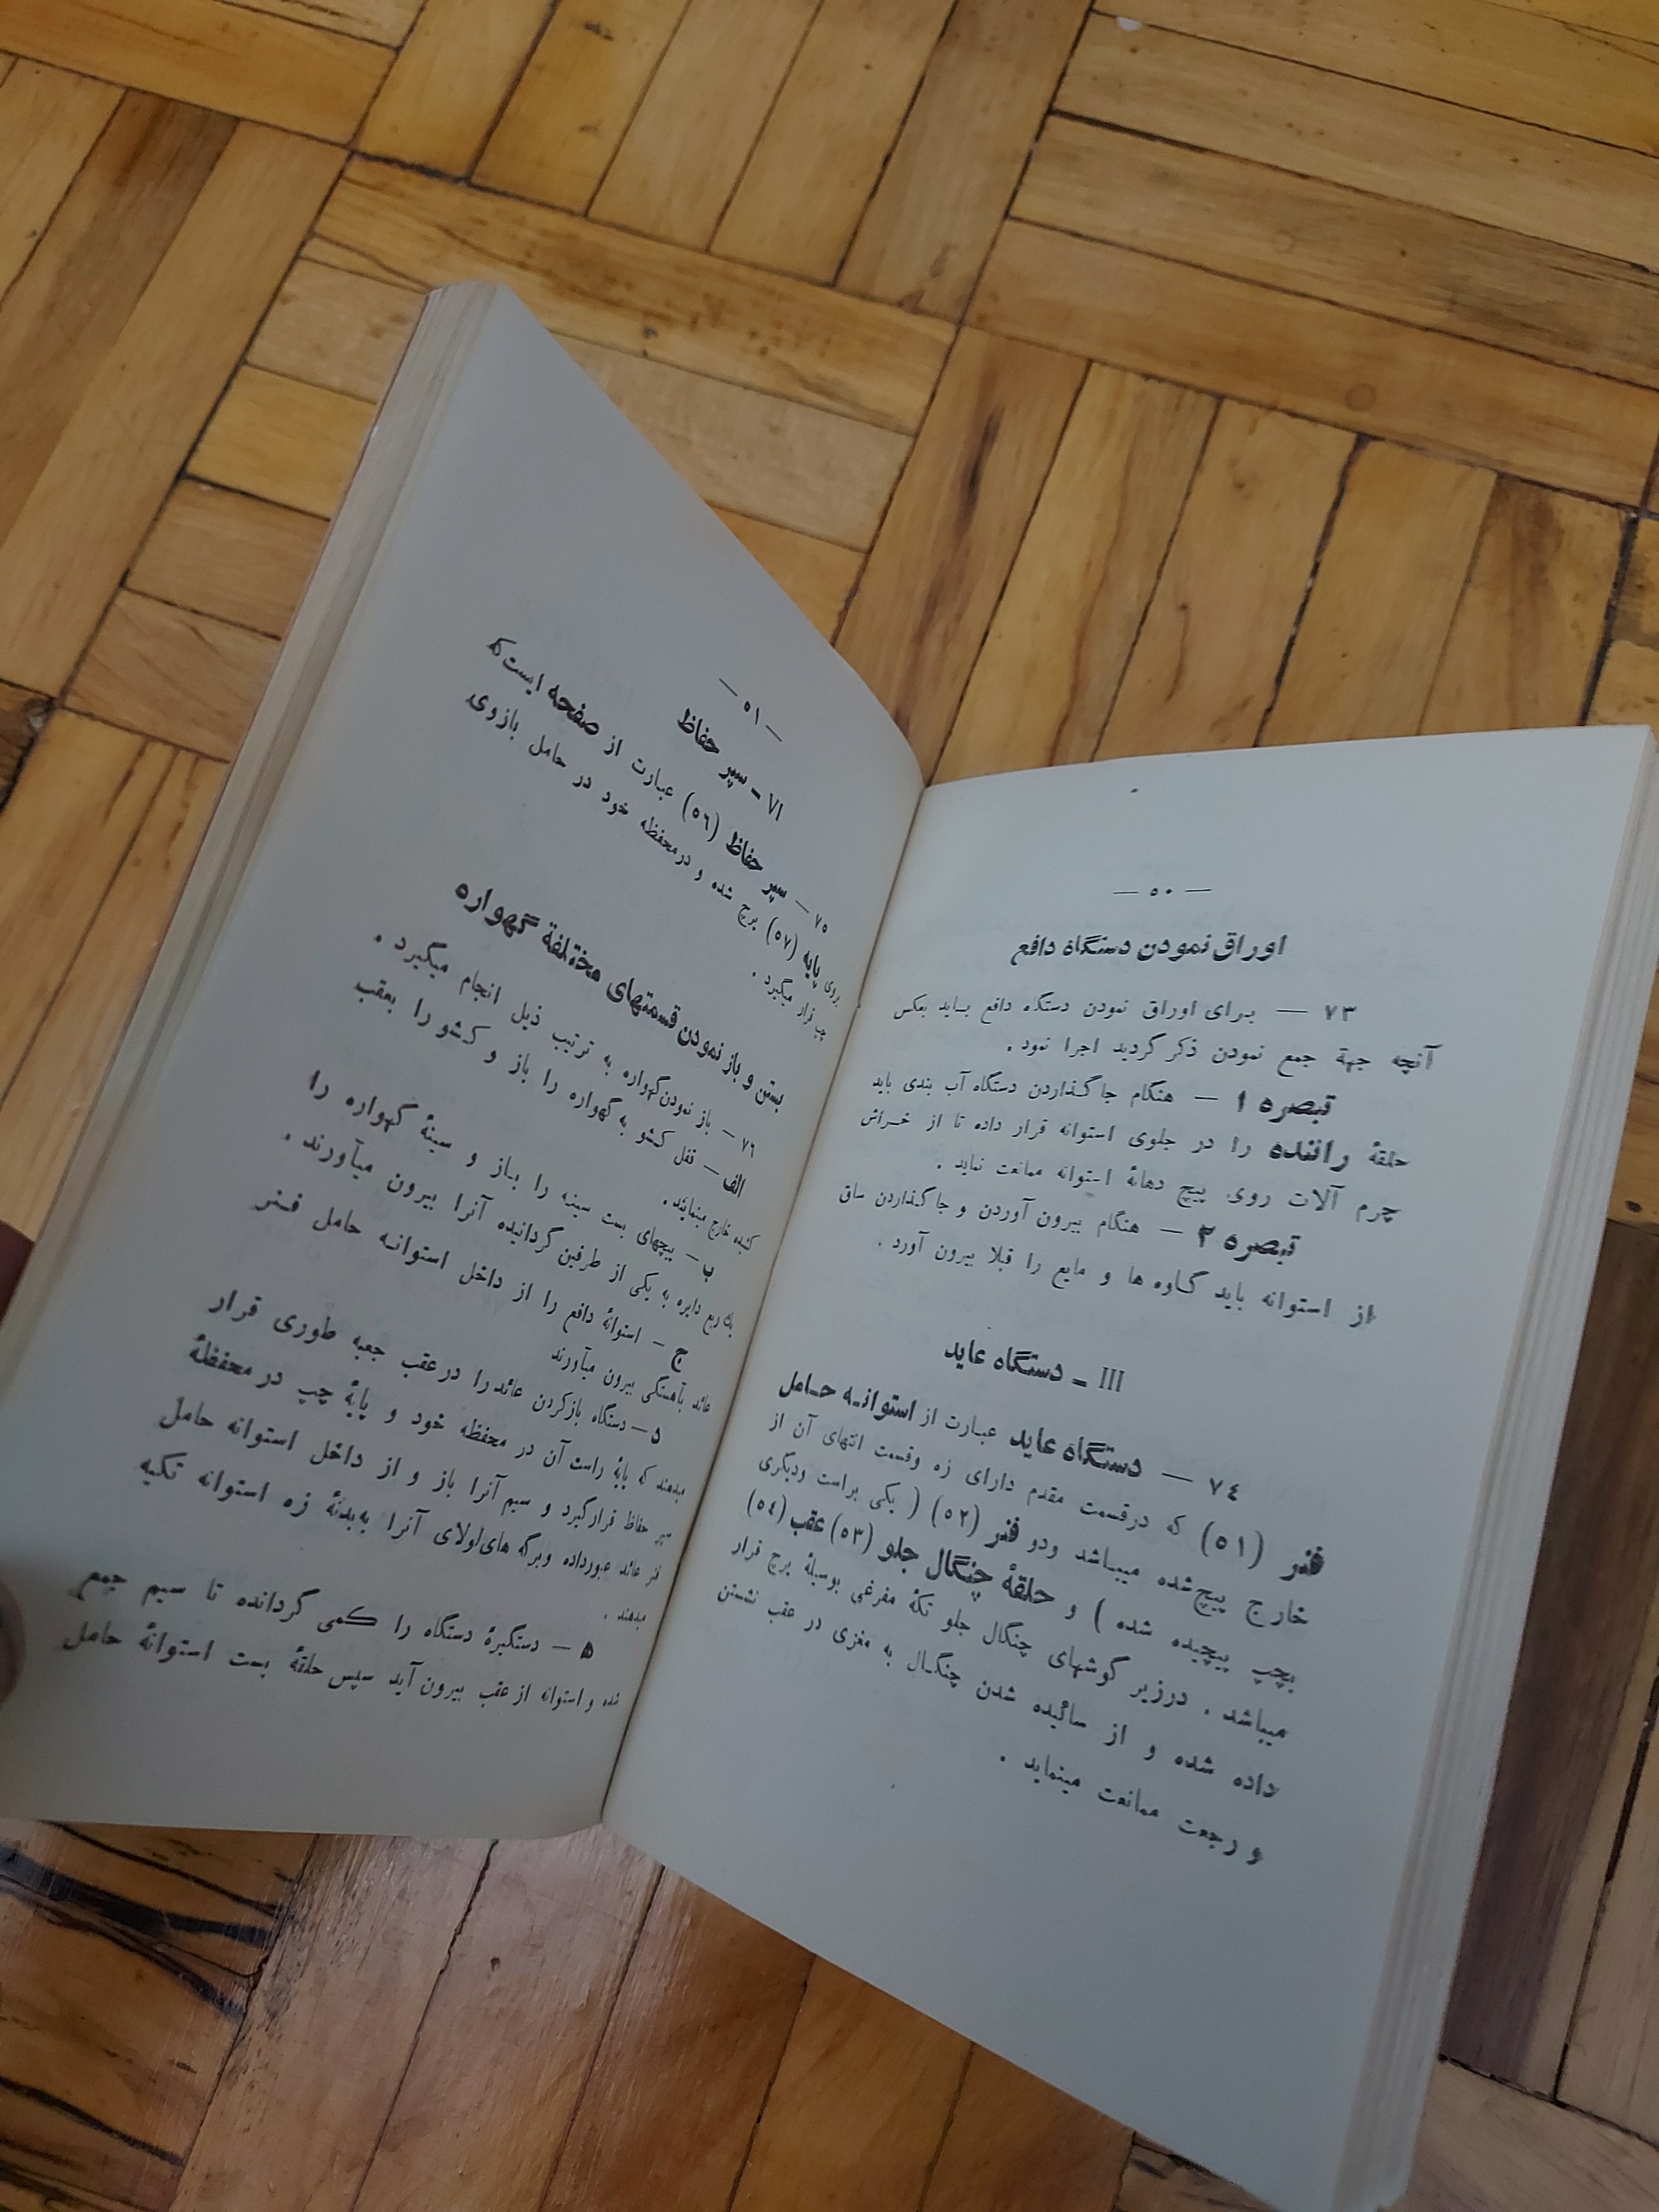 — ٥٠ —
اوراق نمودن دستگاه دافع
٧٣ — برای اوراق نمودن دستگاه دافع باید بعکس
آنچه جهة جمع نمودن ذکر گردید اجرا نمود .
تبصره ١ — هنگام جا گذاردن دستگاه آب بندی باید
حلقهٔ راننده را در جلوی استوانه قرار داده تا از خراش
چرم آلات روی پیچ دهانهٔ استوانه ممانعت نماید .
تبصره ٢ — هنگام بیرون آوردن و جا گذاردن ساق
از استوانه باید گاوه ها و مایع را قبلا بیرون آورد .
III ـ دستگاه عاید
٧٤ — دستگاه عاید عبارت از استوانه حامل
فنر (٥١) که درقسمت مقدم دارای زه وقسمت انتهای آن از
خارج پیچ شده میباشد ودو فنر (٥٢) ( یکی براست ودیگری
بچپ پیچیده شده ) و حلقهٔ چنگال جلو (٥٣) عقب (٥٤)
میباشد . درزیر گوشهای چنگال جلو تکهٔ مفرغی بوسیلهٔ پرچ قرار
داده شده و از سائیده شدن چنگال به مغزی در عقب نشستن
و رجعت ممانعت مینماید .
— ٥١ —
VI ـ سپر حفاظ
٧٥ — سپر حفاظ (٥٦) عبارت از صفحه ایست که
بروی پایه (٥٧) پرچ شده و درمحفظه خود در حامل بازوی
چپ قرار میگیرد .
بستن و باز نمودن قسمتهای مختلفهٔ گهواره
٧٦ — باز نمودن گهواره به ترتیب ذیل انجام میگیرد .
الف — قفل کشو به گهواره را باز و کشو را بعقب
کشیده خارج مینمائید .
ب — پیچهای بست سینه را باز و سینهٔ گهواره را
یك ربع دایره به یکی از طرفین گردانیده آنرا بیرون میآورند .
ج — استوانهٔ دافع را از داخل استوانه حامل فنر
عائد بآهستگی بیرون میآورند
د — دستگاه بازکردن عائد را درعقب جعبه طوری قرار
میدهند که پایهٔ راست آن در محفظه خود و پایهٔ چپ در محفظهٔ
سپر حفاظ قرار گیرد و سیم آنرا باز و از داخل استوانه حامل
فنر عائد عبورداده وبرگه های لولای آنرا به بدنهٔ زه استوانه تکیه
میدهند .
ه — دستگیرهٔ دستگاه را کمی گردانده تا سیم جمع
شده و استوانه از عقب بیرون آید سپس حلقهٔ بست استوانهٔ حامل